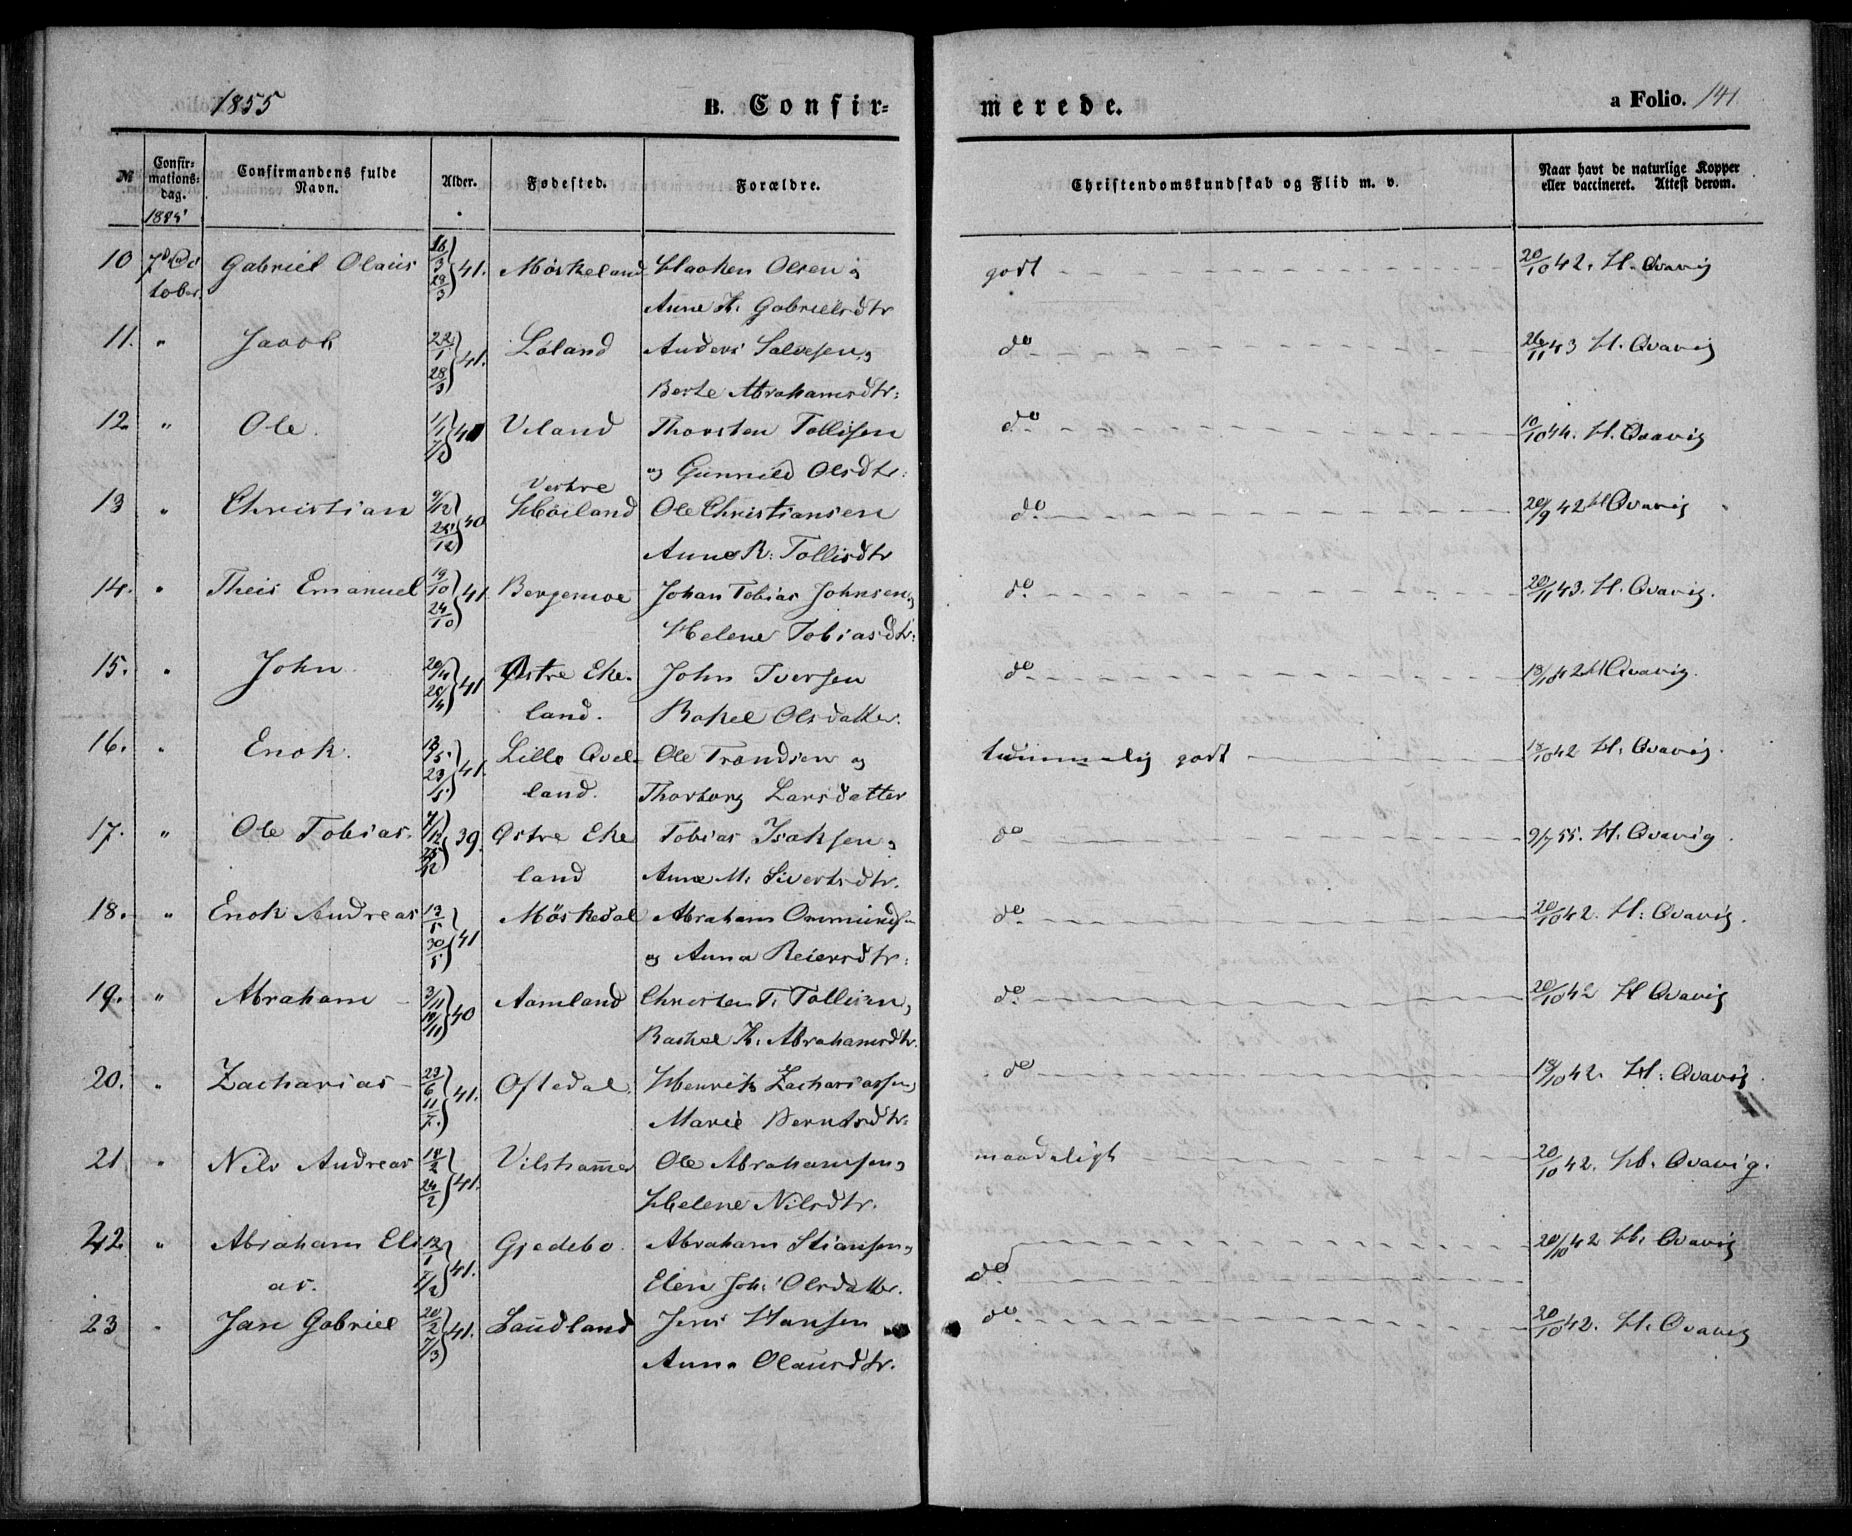 1855 B. Confir=
merede. a Folio. 141
№ Confir-mations-dag. Confirmandens fulde Navn. Alder. Fødested. Forældre. Christendomskundskab og Flid m. v. Naar havt de naturlige Kopper eller vaccineret. Attest derom.
1855
10 7de Oc Gabriel Olaus 16/3 29/3 } 41. Møskeland Haaken Olsen og godt 20/10 42. H. Qvavig
tober. Anne K. Gabrielsdtr
11. " Jacob 22/1 28/3 } 41. Løland Anders Salvesen og do 26/11 43 H. Qvavig
Berte Abrahamsdtr:
12. " Ole Viland Thorsten Tollisen do 10/10 44. H. Qvavig
og Gunnild Olsdtr:
13 " Christian 9/12 25/12 } 40 Vestre Høiland Ole Christiansen do. 20/9 42 H Qvavig
Anne R: Tollisdtr
14. " Theis Emanuel 19/10 24/10 } 41. Bergemoe Johan Tobias Johnsen og do 20/11 43. H. Qvavig.
Helene Tobiasdtr:
15. " John Østre Eke- John Iversen do 18/10 42 H Qvavig.
land. Rakel Olsdatter.
16. " Enok. 13/5 23/5 } 41. Lille Qvel- Ole Trondsen og temmelig godt 18/10 42 H. Qvavig.
land. Thorborg Larsdatter
17. " Ole Tobias. 7/12 25/12 } 39. Østre Eke Tobias Isaksen og do 9/7 55. H. Qvavig.
land Anne M. Sivertsdtr.
18. " Enok Andreas 13/5 30/5 } 41 Møskedal Abraham Ommundsen do 20/10 42. H: Qvavig.
og Anna Reiersdtr:
19. " Abraham 3/11 10/11 } 40 Aamland Christen T. Tollisen og do. 20/10 42 H Qvavig
Rachel K. Abrahamsdtr.
20. " Zacharias 23/6 11/7. } 41. Oftedal Henrik Zachariassen og do 18/10 42. H: Qvavig.
Marie Berntsdtr:
21 " Nils Andreas 18/2 24/2 } 41. Vilshammer Ole Abrahamsen og maadeligt 20/10 42. H. Qvavig.
Helene Nilsdtr.
22 " Abraham Eli 12/1 7/2 } 41. Gjedebo. Abraham Stiansen og do 20/10 42 H. Qvavig
as. Elen Joh: Olsdatter.
23 " Jan Gabriel 20/2 7/3 } 41. Laudland Jens Hansen do 20/10 42. H. Qvavig
Anna Olausdtr.